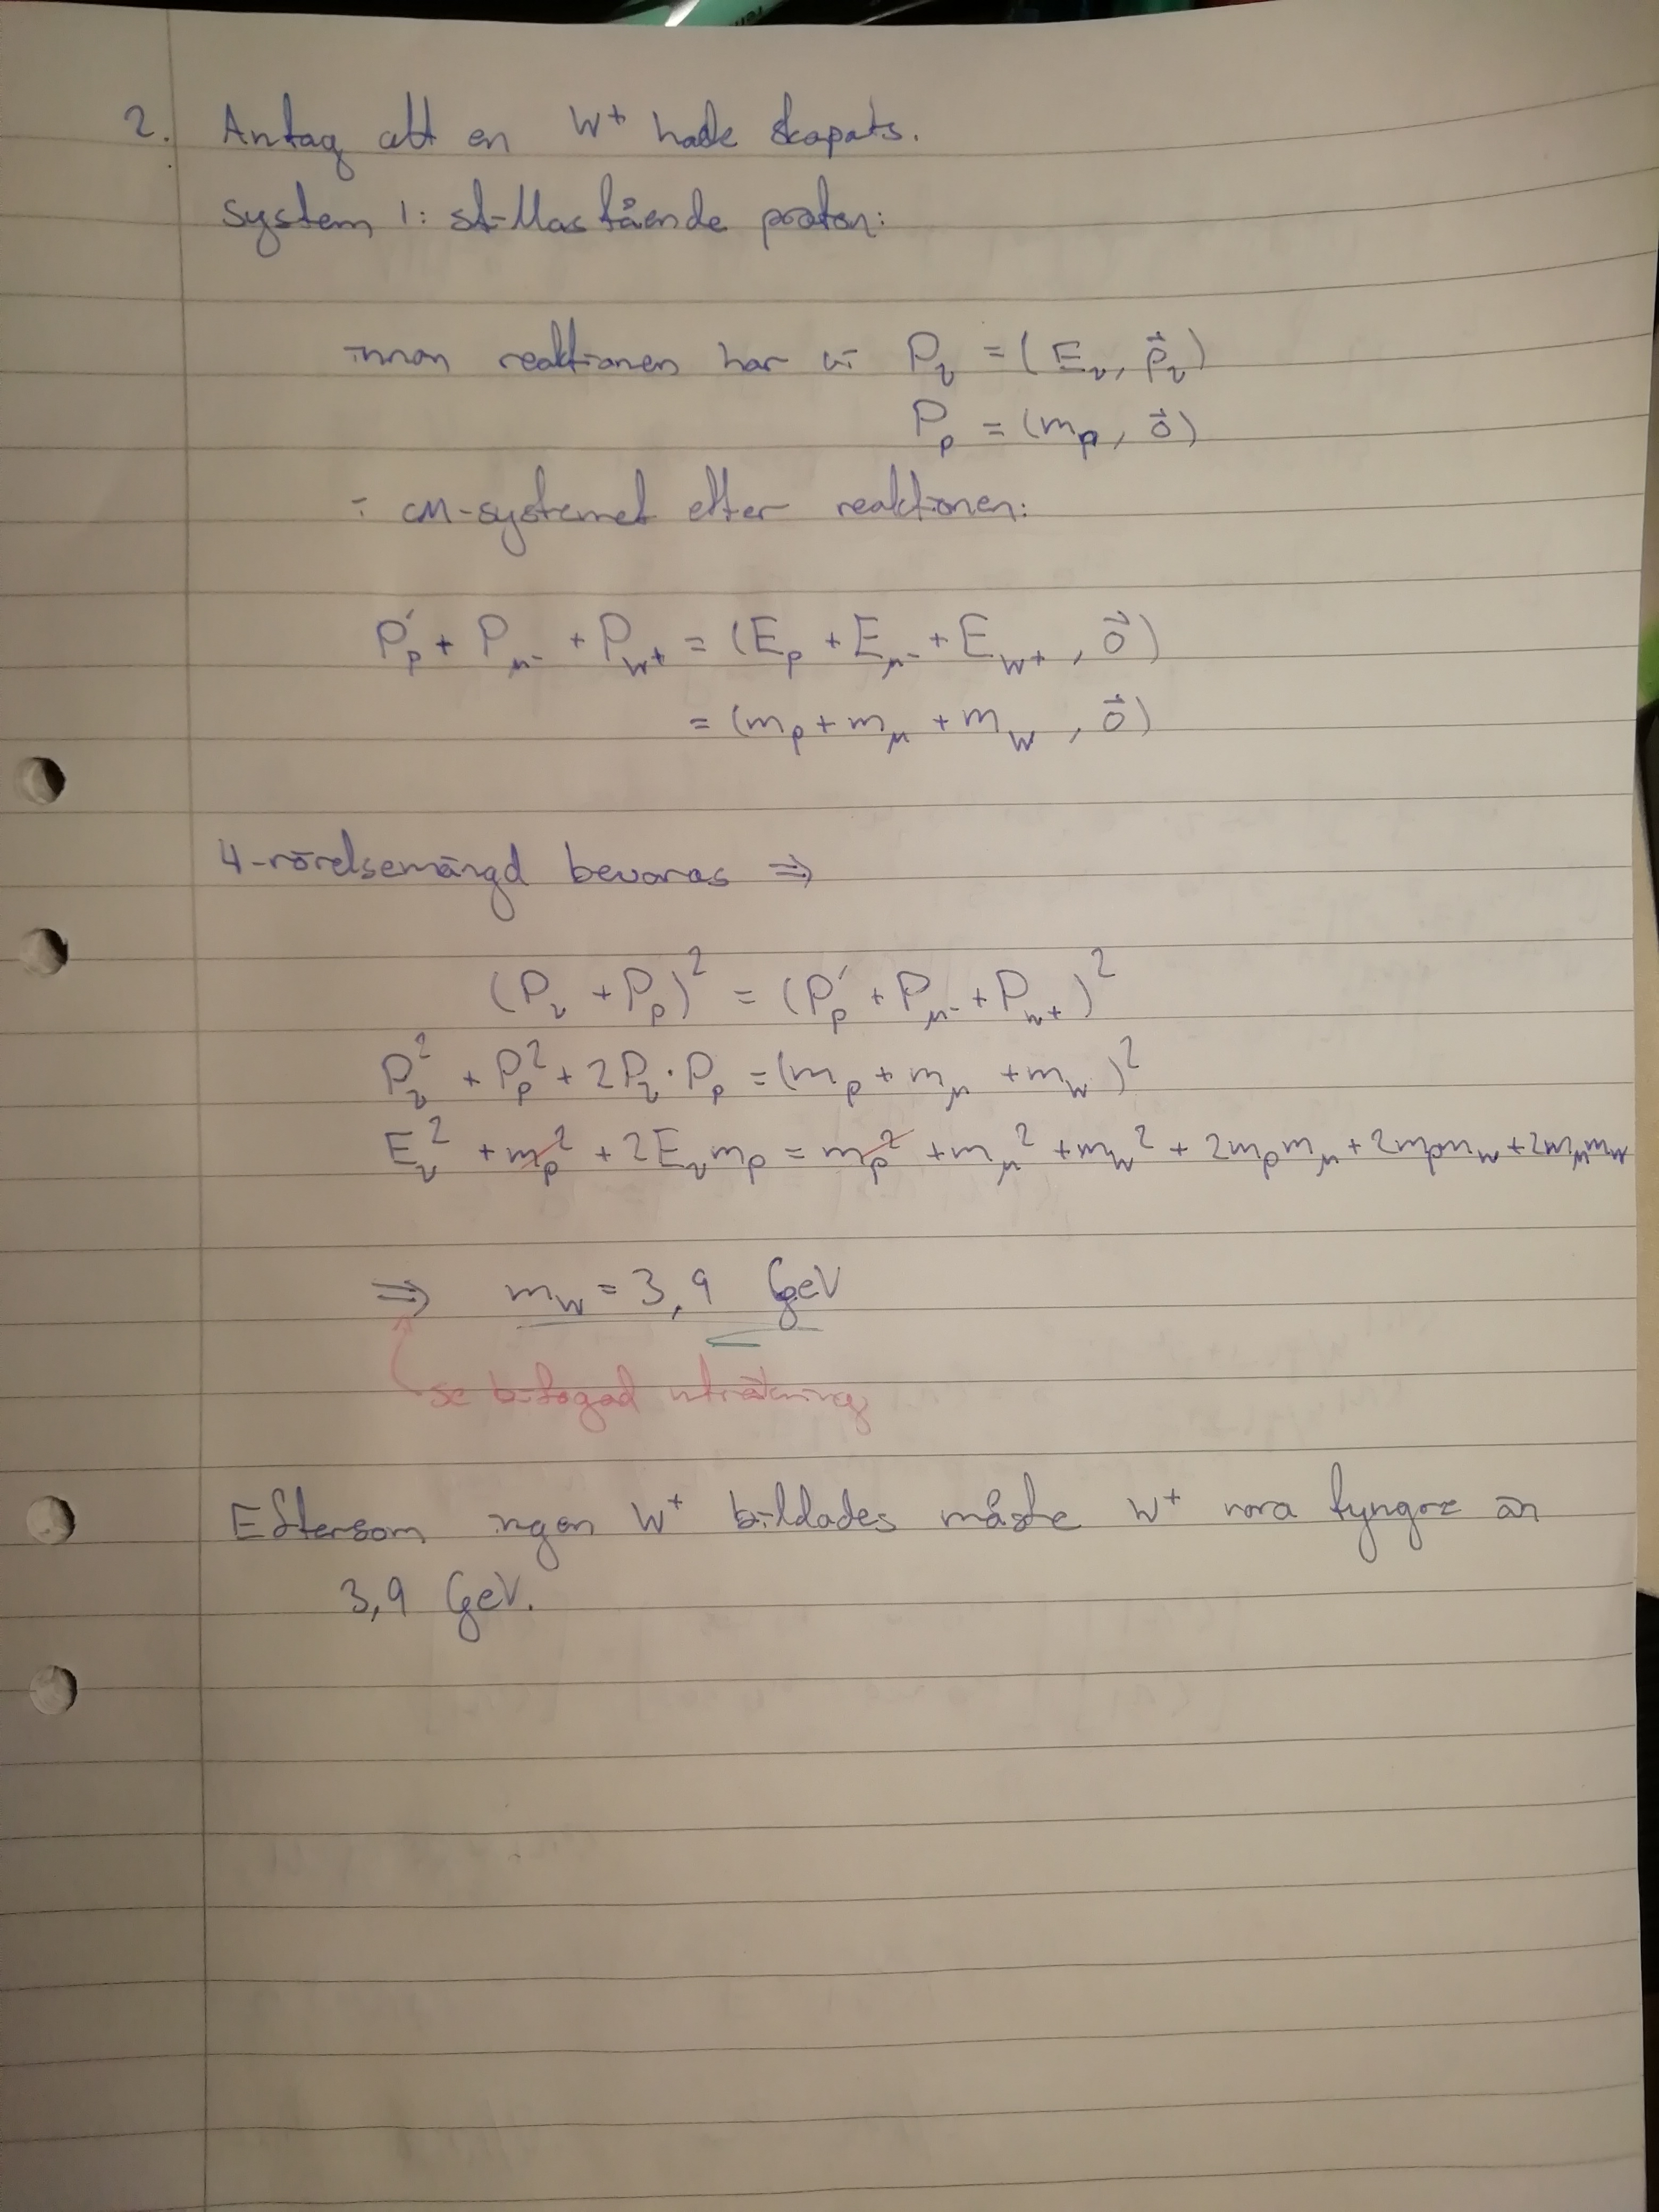 2. Antag att en W⁺ hade skapats.
System 1: stillastående proton:
innan reaktionen har vi P_ν = (E_ν, p⃗_ν)
P_p = (m_p, 0⃗)
i CM-systemet efter reaktionen:
P'_p + P_μ⁻ + P_W⁺ = (E_p + E_μ⁻ + E_W⁺, 0⃗)
= (m_p + m_μ + m_W, 0⃗)
4-rörelsemängd bevaras ⇒
(P_ν + P_p)² = (P'_p + P_μ⁻ + P_W⁺)²
P_ν² + P_p² + 2P_ν·P_p = (m_p + m_μ + m_W)²
E_ν² + m_p² + 2E_ν m_p = m_p² + m_μ² + m_W² + 2m_p m_μ + 2m_p m_W + 2m_μ m_W
⇒ m_W = 3,9 GeV
se bifogad uträkning
Eftersom ingen W⁺ bildades måste W⁺ vara tyngre än
3,9 GeV.